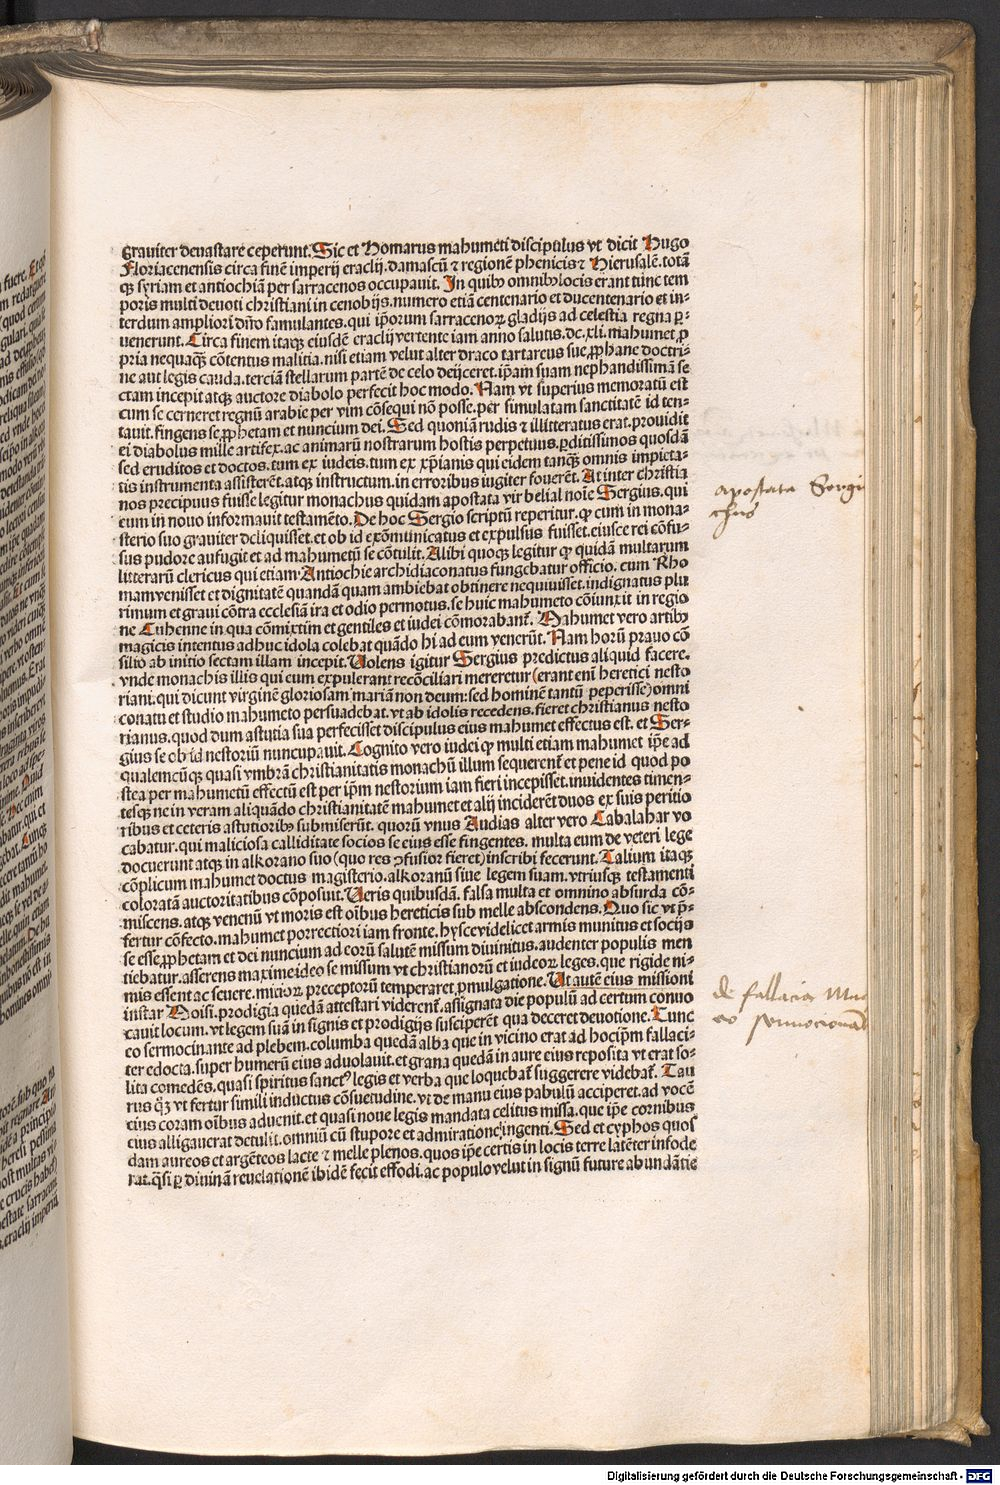 graviter deuastare ceperunt. Sic et Homarus mahumeti discipulus vt dicit Hugo
Floriacenensis circa finē imperij eraclij. damascū ⁊ regionē phenicis ⁊ Hierusalē. totā
qꝫ syriam et antiochiā per sarracenos occupauit. In quibꝰ omnibꝰ locis erant tunc tem
poris multi deuoti christiani in cenobijs. numero etiā centenario et ducentenario et in-
terdum ampliori dn̄o famulantes. qui ip̄orum sarracenoꝝ gladijs ad celestia regna ꝑ-
uenerunt. Circa finem itaqꝫ eiusdē eraclij vertente iam anno salutis. dc. xli. mahumet ꝓ
pria nequaqꝫ cōtentus malitia. nisi etiam velut alter draco tartareus sue ꝓphane doctri-
ne aut legis cauda. terciā stellarum partē de celo deijceret. ip̄am suam nephandissimā se
ctam incepit atqꝫ auctore diabolo perfecit hoc modo. Nam vt superius memoratū est
cum se cerneret regnū arabie per vim cōsequi nō posse. per simulatam sanctitatē id ten-
tauit. fingens se ꝓphetam et nuncium dei. Sed quoniā rudis ⁊ illitteratus erat. ꝓuidit
ei diabolus mille artifex. ac animarū nostrarum hostis perpetuus. ꝑditissimos quosdā
sed eruditos et doctos. tum ex iudeis. tum ex xp̄ianis qui eidem tanqꝫ omnis impieta-
tis instrumenta assisterēt. atqꝫ instructum. in erroribus iugiter fouerēt. At inter christia
nos precipuus fuisse legitur monachus quidam apostata vir belial noīe Sergius. qui
eum in nouo informauit testamēto. De hoc Sergio scriptū reperitur. ꝙ cum in mona-
sterio suo grauiter deliquisset. et ob id excōmunicatus et expulsus fuisset. eiusce rei cōfu-
sus pudore aufugit et ad mahumetū se cōtulit. Alibi quoqꝫ legitur ꝙ quidā multarum
litterarū clericus qui etiam Antiochie archidiaconatus fungebatur officio. cum Rho
mam venisset et dignitatē quandā quam ambiebat obtinere nequiuisset. indignatus plu
rimum et graui cōtra ecclesiā ira et odio permotus. se huic mahumeto cōiunxit in regio
ne Cuhenne in qua cōmixtim et gentiles et iudei cōmorabant᷑. Mahumet vero artibꝰ
magicis intentus adhuc idola colebat quādo hi ad eum venerūt. Nam horū prauo cō
silio ab initio sectam illam incepit. Uolens igitur Sergius predictus aliquid facere.
vnde monachis illis qui eum expulerant recōciliari mereretur (erant enī heretici nesto
riani. qui dicunt virginē gloriosam mariā non deum: sed hominē tantū peperisse) omni
conatu et studio mahumeto persuadebat. vt ab idolis recedens. fieret christianus nesto
rianus. quod dum astutia sua perfecisset discipulus eius mahumet effectus est. et Ser-
gius se ob id nestoriū nuncupauit. Cognito vero iudei ꝙ multi etiam mahumet ip̄e ad
qualemcūqꝫ quasi vmbrā christianitatis monachū illum sequerent᷑ et pene id quod po
stea per mahumetū effectū est per ip̄m nestorium iam fieri incepisset. inuidentes timen-
tesqꝫ ne in veram aliquādo christianitatē mahumet et alij inciderēt duos ex suis peritio
ribus et ceteris astutioribꝰ submiserūt. quorū vnus Audias alter vero Cabalahar vo
cabatur. qui maliciosa calliditate socios se eius esse fingentes. multa eum de veteri lege
docuerunt atqꝫ in alkorano suo (quo res ꝯfusior fieret) inscribi fecerunt. Talium itaqꝫ
cōplicum mahumet doctus magisterio. alkoranū siue legem suam. vtriusqꝫ testamenti
coloratā auctoritatibus cōposuit. Ueris quibusdā. falsa multa et omnino absurda cō-
miscens. atqꝫ venenū vt moris est oībus hereticis sub melle abscondens. Quo sic vt p̄-
fertur cōfecto. mahumet porrectiori iam fronte. hysce videlicet armis munitus et socijs
se esse ꝓphetam et dei nuncium ad eorū salutē missum diuinitus. audenter populis men
tiebatur. asserens maxime ideo se missum vt christianorū et iudeoꝝ leges. que rigide ni-
mis essent ac seuere. micioꝝ preceptorū temperaret ꝓmulgatione. Ut autē eius missioni
instar Moisi. prodigia quedā attestari viderent᷑. assignata die populū ad certum conuo
cauit locum. vt legem suā in signis et prodigijs susciperēt qua deceret deuotione. Tunc
eo sermocinante ad plebem. columba quedā alba que in vicino erat ad hoc ip̄m fallaci-
ter edocta. super humerū eius aduolauit. et grana quedā in aure eius reposita vt erat so-
lita comedēs. quasi spiritus sanctꝰ legis et verba que loquebat᷑ suggerere videbat᷑. Tau
rus qꝫ vt fertur simili inductus cōsuetudine. vt de manu eius pabulū acciperet. ad vocē
eius coram oībus aduenit. et quasi noue legis mandata celitus missa. que ip̄e cornibus
eius alligauerat detulit. omniū cū stupore et admiratione ingenti. Sed et cyphos quos
dam aureos et argēteos lacte ⁊ melle plenos. quos ip̄e certis in locis terre latēter infode
rat. q̄si ꝑ diuinā reuelationē ibidē fecit effodi. ac populo velut in signū future abundātie
apostata Sergi
chus
de fallacia
eo
Digitalisierung gefördert durch die Deutsche Forschungsgemeinschaft - DFG